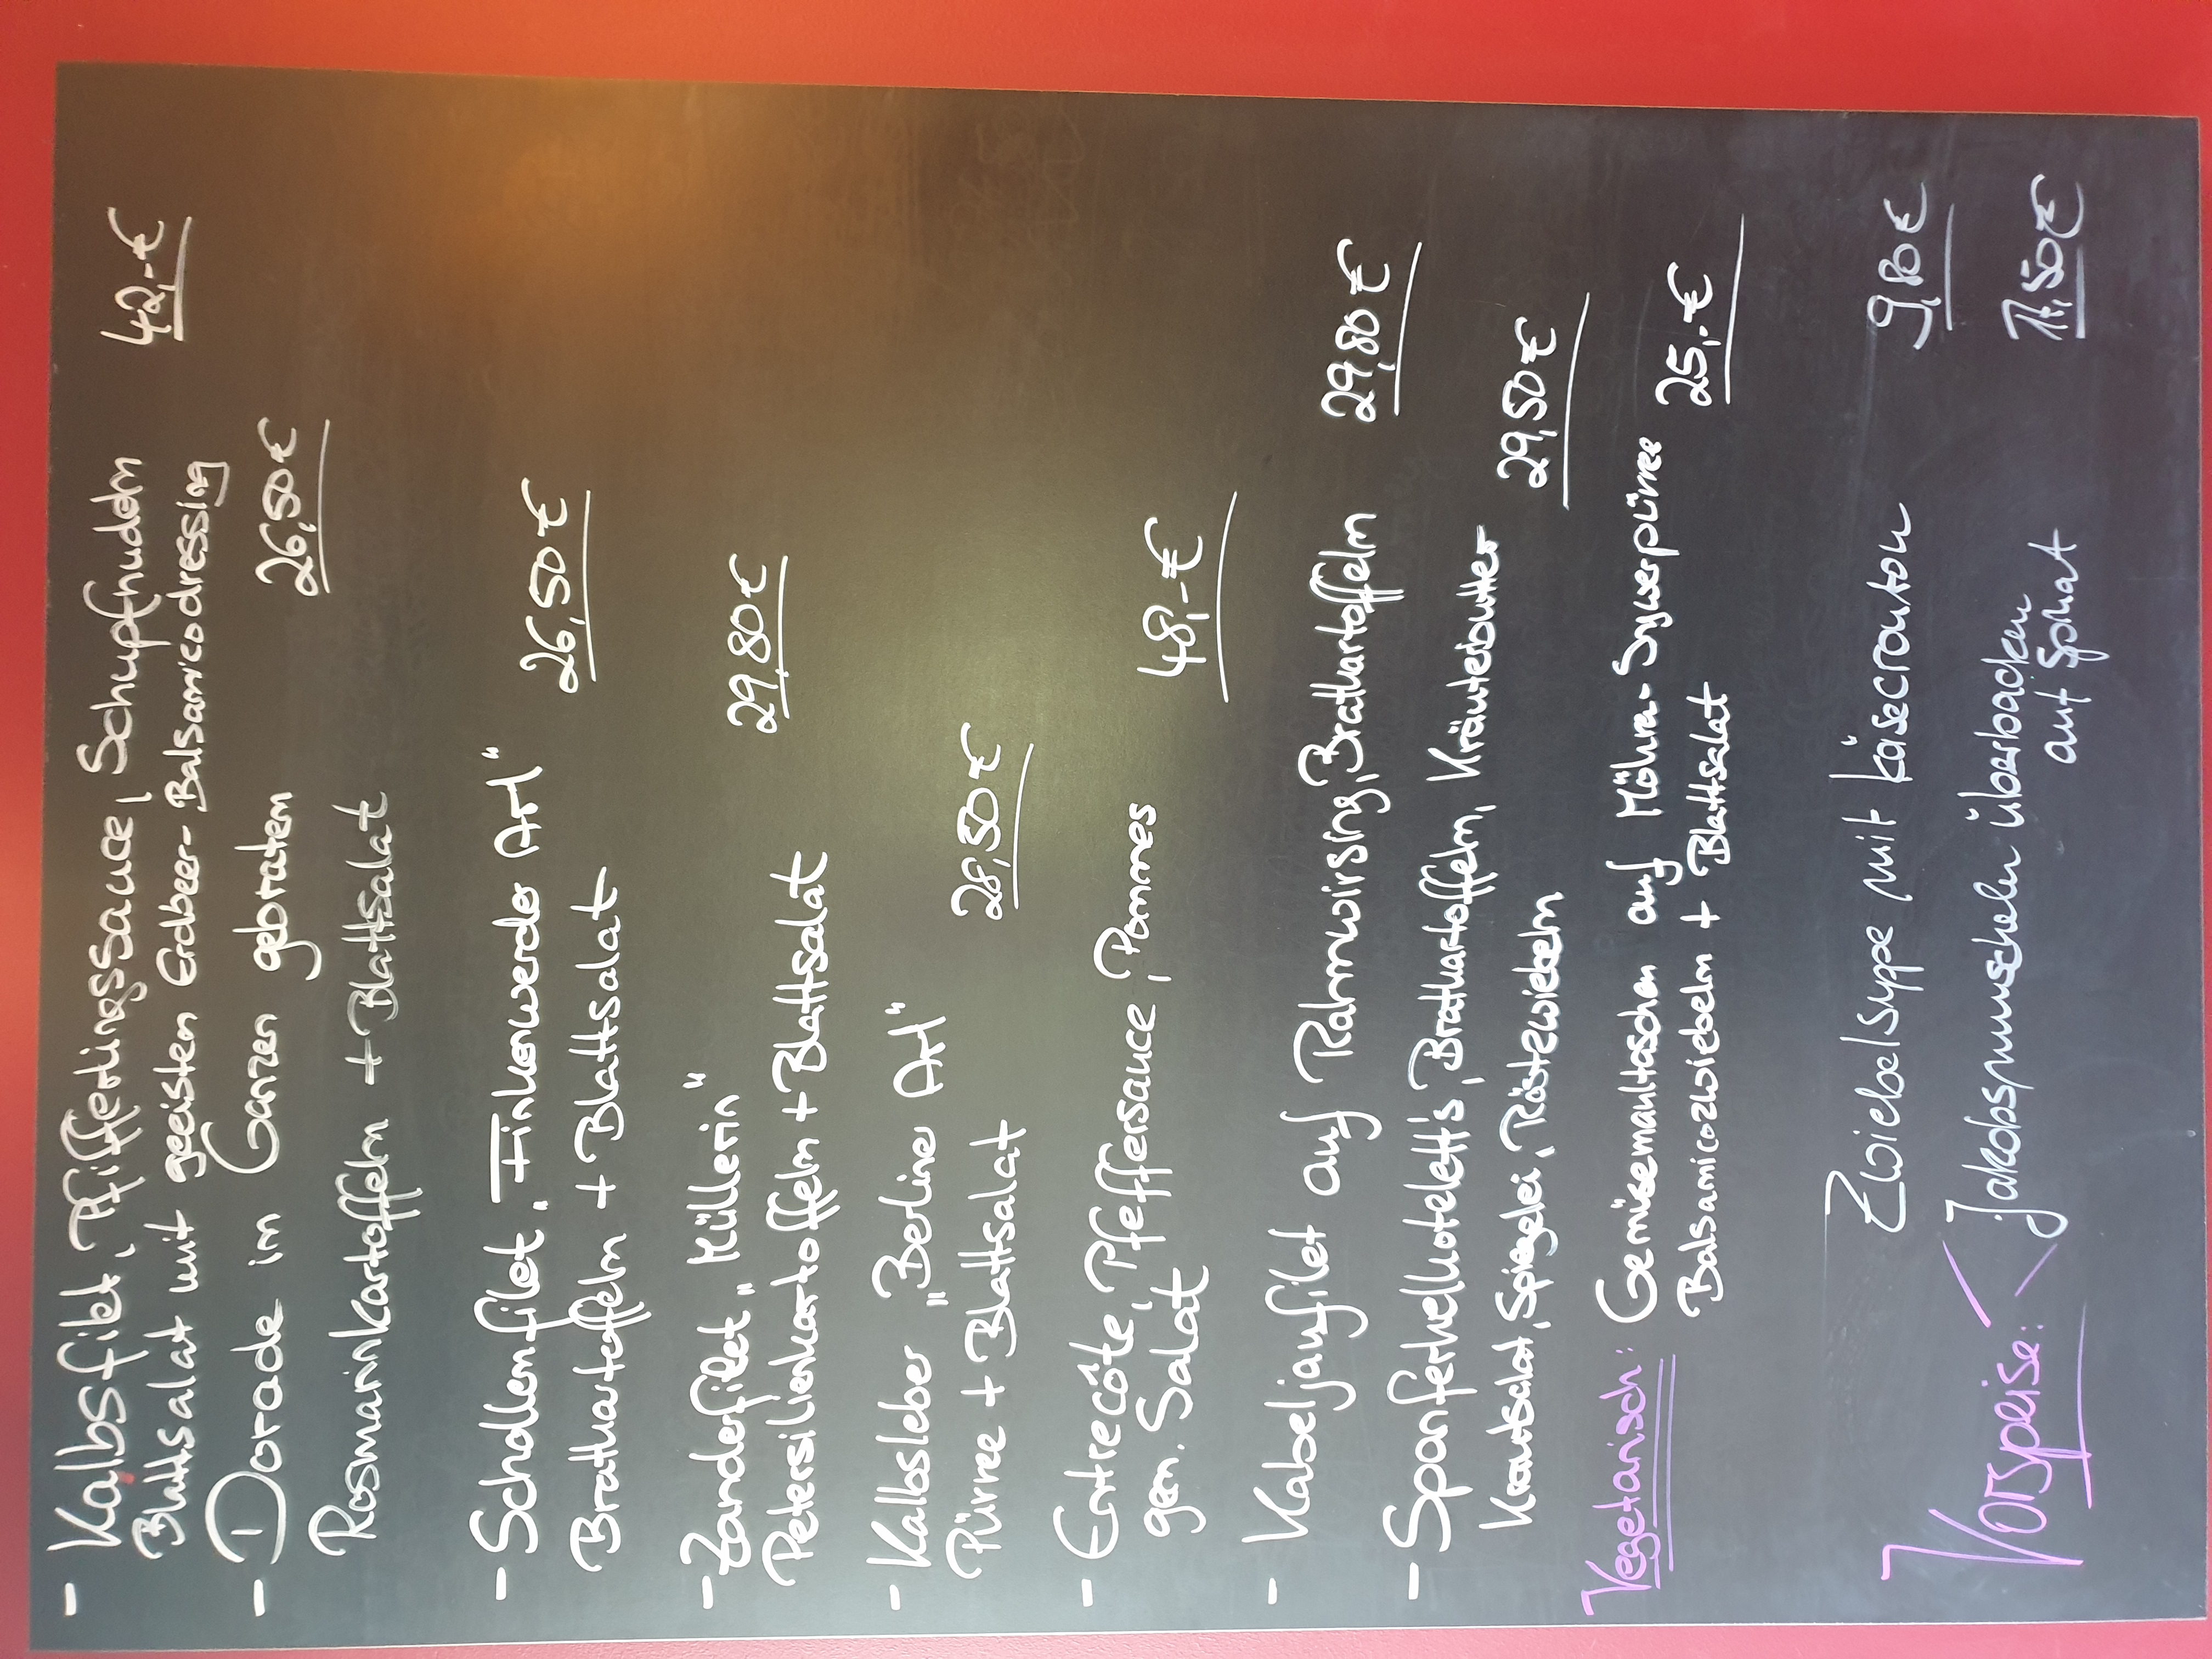 - Kalbsfilet, Pfifferlingssauce, Schupfnudeln
Blattsalat mit geeisten Erdbeer-Balsamicodressing 42,-€
- Dorade im Ganzen gebraten 26,50€
Rosmarinkartoffeln + Blattsalat
- Schollenfilet „Finkenwerder Art“ 26,50€
Bratkartoffeln + Blattsalat
- Zanderfilet „Müllerin“ 29,80€
Petersilienkartoffeln + Blattsalat
- Kalbsleber „Berliner Art“
Pürree + Blattsalat 28,50€
- Entrecôte, Pfeffersauce, Pommes
gem. Salat 48,-€
- Kabeljaufilet auf Rahmwirsing, Bratkartoffeln 29,80€
- Spanferkelkotelett's, Bratkartoffeln, Kräuterbutter
Krautsalat, Spiegelei, Röstzwiebeln 29,50€
Vegetarisch: Gemüsemaultaschen auf Möhren-Ingwerpürree
Balsamicozwiebeln + Blattsalat 25,-€
Zwiebelsuppe mit Käsecrouton 9,80€
Vorspeise: Jakobsmuscheln überbacken
auf Spinat ,50€